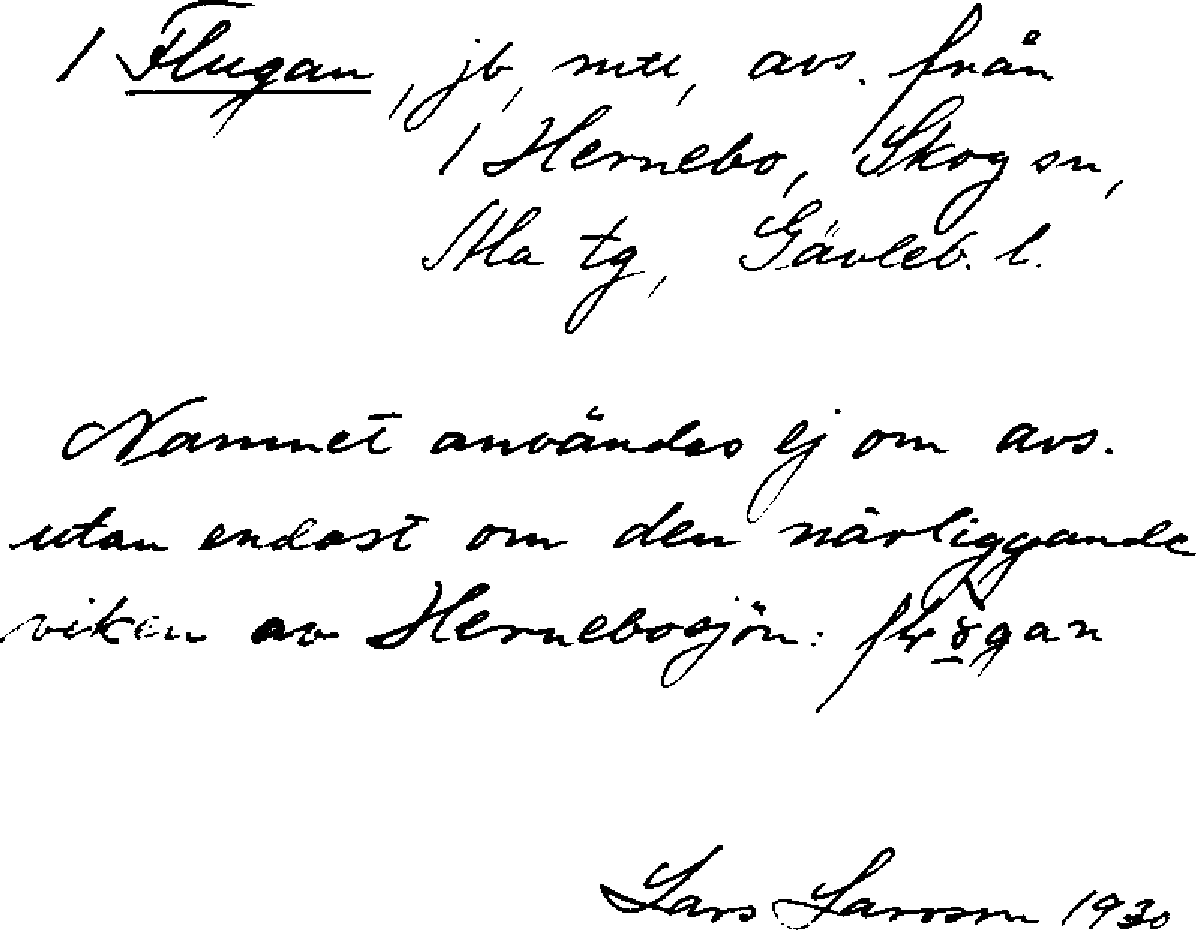 1 Flugan, jb, mtl, avs. från
1 Hernebo, Skog sn,
Ala tg, Gävleb. l.
Namnet användes ej om avs.
utan endast om den närliggande
viken av Hernebosjön:
Lars Larsson 1930